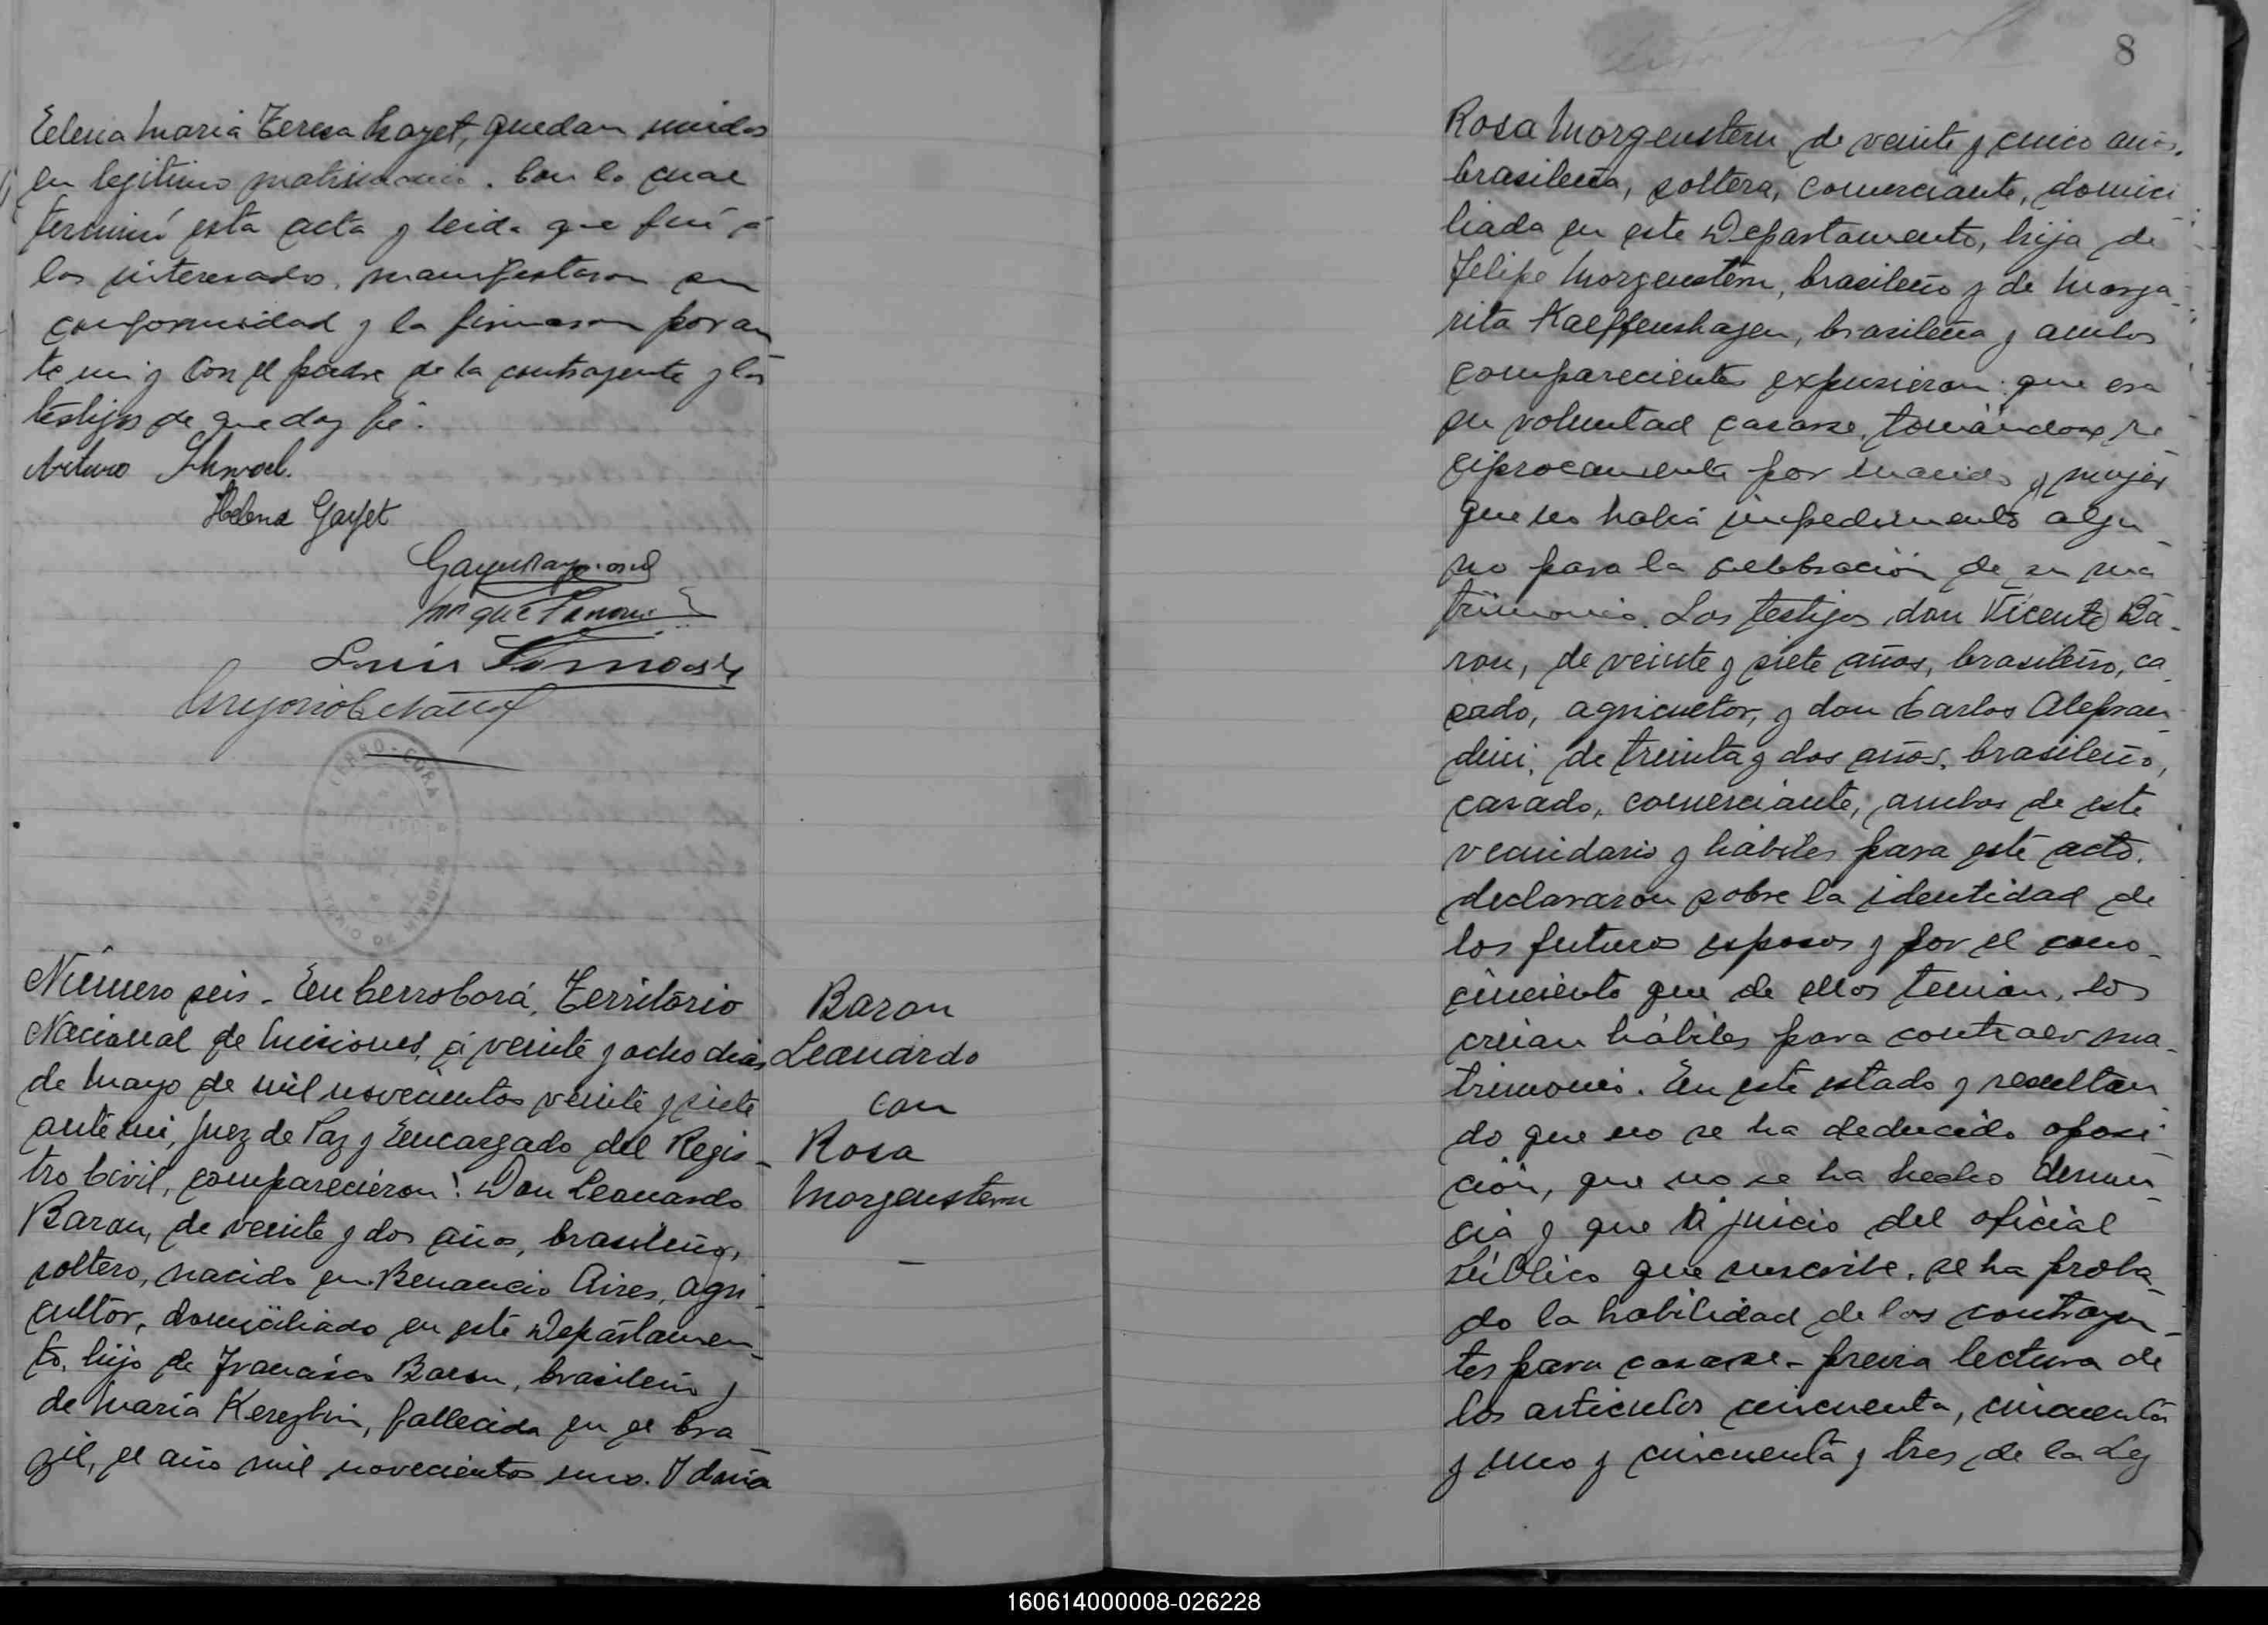 Elena Maria Teresa Gayet, quedan unidos
en legitimo matrimonio. Con lo cual
terminó esta acta y leida que fué á
los interesados, manifestaron su
conformidad y la firmaron por an
te mi y con el padre de la contrayente y los
testigos de que doy fé.
Arturo
Helena Gayet
Luis
CERRO-CORA
TERRITORIO DE MISIONES
Número seis - En Cerro Corá, Territorio
Nacional de Misiones, á veinte y ocho dias
de Mayo de mil novecientos veinte y siete
ante mi, Juez de Paz y Encargado del Regis-
tro Civil, comparecieron: Don Leonardo
Baron, de veinte y dos años, brasileño,
soltero, nacido en Benancio Aires, agri-
cultor, domiciliado en este Departamen-
to, hijo de Francisco Baron, brasileño y
de Maria, fallecida en el Bra-
zil, el año mil novecientos uno. Y doña
Baron
Leonardo
con
Rosa
Morgenstern
8
Rosa Morgenstern, de veinte y cinco años,
brasileña, soltera, comerciante, domici
liada en este Departamento, hija de
Felipe Morgenstern, brasileño y de Marga-
rita Kaeffenshagen, brasileña y ambos
comparecientes expusieron: que era
su voluntad casarse, tomándose re
ciprocamente por marido y mujer
que no habia impedimento algu-
no para la celebración de su ma
trimonio. Los testigos don Vicente Ba-
ron, de veinte y siete años, brasileño, ca-
sado, agricultor, y don Carlos Alejan-
drini, de treinta y dos años, brasileño,
casado, comerciante, ambos de este
vecindario y hábiles para este acto,
declararon sobre la identidad de
los futuros esposos y por el cono-
cimiento que de ellos tenian, los
creian hábiles para contraer ma-
trimonio. En este estado y resultan
do que no se ha deducido oposi
ción, que no se ha hecho denun-
cia y que á juicio del oficial
público que suscribe, se ha proba-
do la habilidad de los contrayen-
tes para casarse - previa lectura de
los articulos cincuenta, cincuenta
y uno y cincuenta y tres de la Ley
160614000008-026228